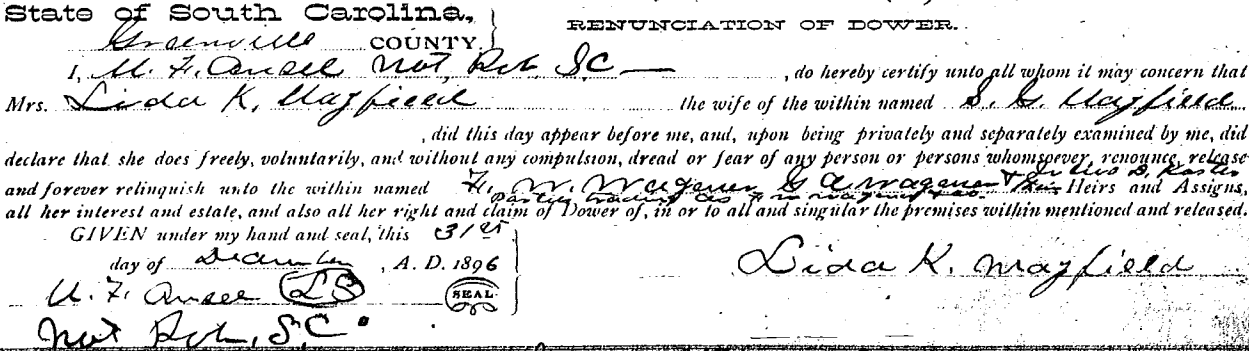 State of South Carolina,
RENUNCIATION OF DOWER.
Greenville COUNTY.
I, M. F. Ansel Not. Pub. S.C , do hereby certify unto all whom it may concern that
Mrs. Lida K. Mayfield the wife of the within named S. G. Mayfield
, did this day appear before me, and, upon being privately and separately examined by me, did
declare that she does freely, voluntarily, and without any compulsion, dread or fear of any person or persons whomsoever, renounce, release
and forever relinquish unto the within named F. W. Wagener G A Wagener & Heirs and Assigns,
Parties trading as F W Wagener & Co.
all her interest and estate, and also all her right and claim of Dower of, in or to all and singular the premises within mentioned and released.
GIVEN under my hand and seal, this 31st
day of December , A. D. 1896
Lida K. Mayfield
M. F. Ansel LS SEAL.
Not Pub, S.C.